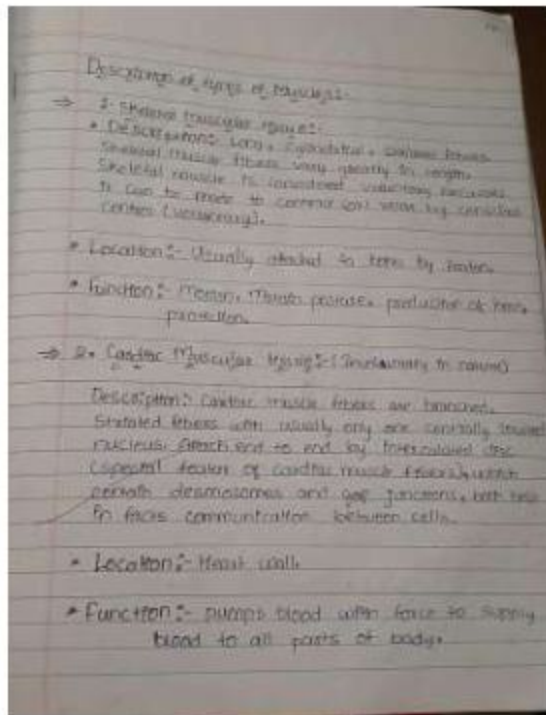 Description of types of Muscles:-
⇒ 1. Skeletal muscular tissue:-
* Description:- Long, cylindrical, striated fibers.
Skeletal muscle fibers vary greatly in length.
Skeletal muscle is considered voluntary because
it can be made to contract or relax by conscious
control (voluntary).
* Location:- Usually attached to bones by tendon.
* Function:- Motion, posture, production of heat,
protection.
⇒ 2. Cardiac Muscular tissue:- (Involuntary in nature)
Description:- Cardiac muscle fibers are branched,
Striated fibers with usually only one centrally located
nucleus. Attach end to end by Intercalated disc
(special feature of cardiac muscle fibers), which
contain desmosomes and gap junctions, both help
in communication between cells.
* Location:- Heart wall.
* Function:- pumps blood with force to supply
blood to all parts of body.